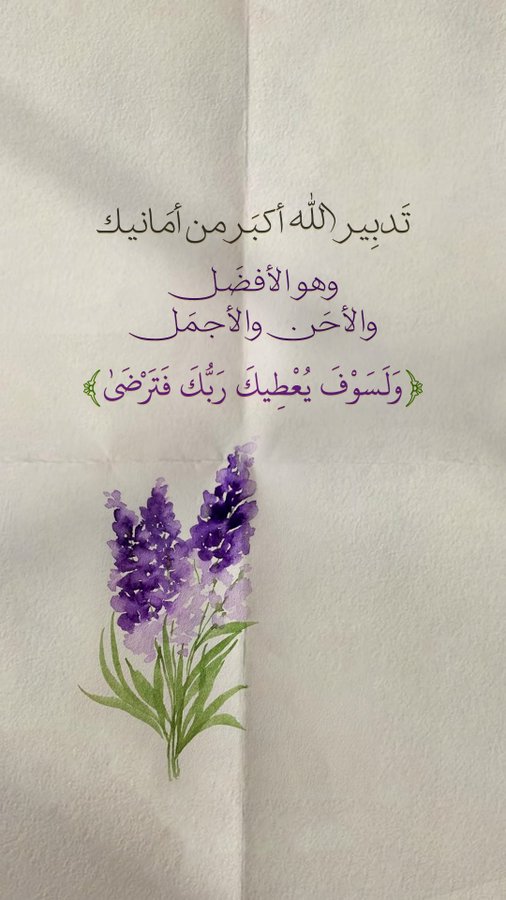 تَدبِير الله أكبَر من أمَانيك
وهو الأفضَل
والأحَن والأجمَل
﴿وَلَسَوْفَ يُعْطِيكَ رَبُّكَ فَتَرْضَىٰ﴾